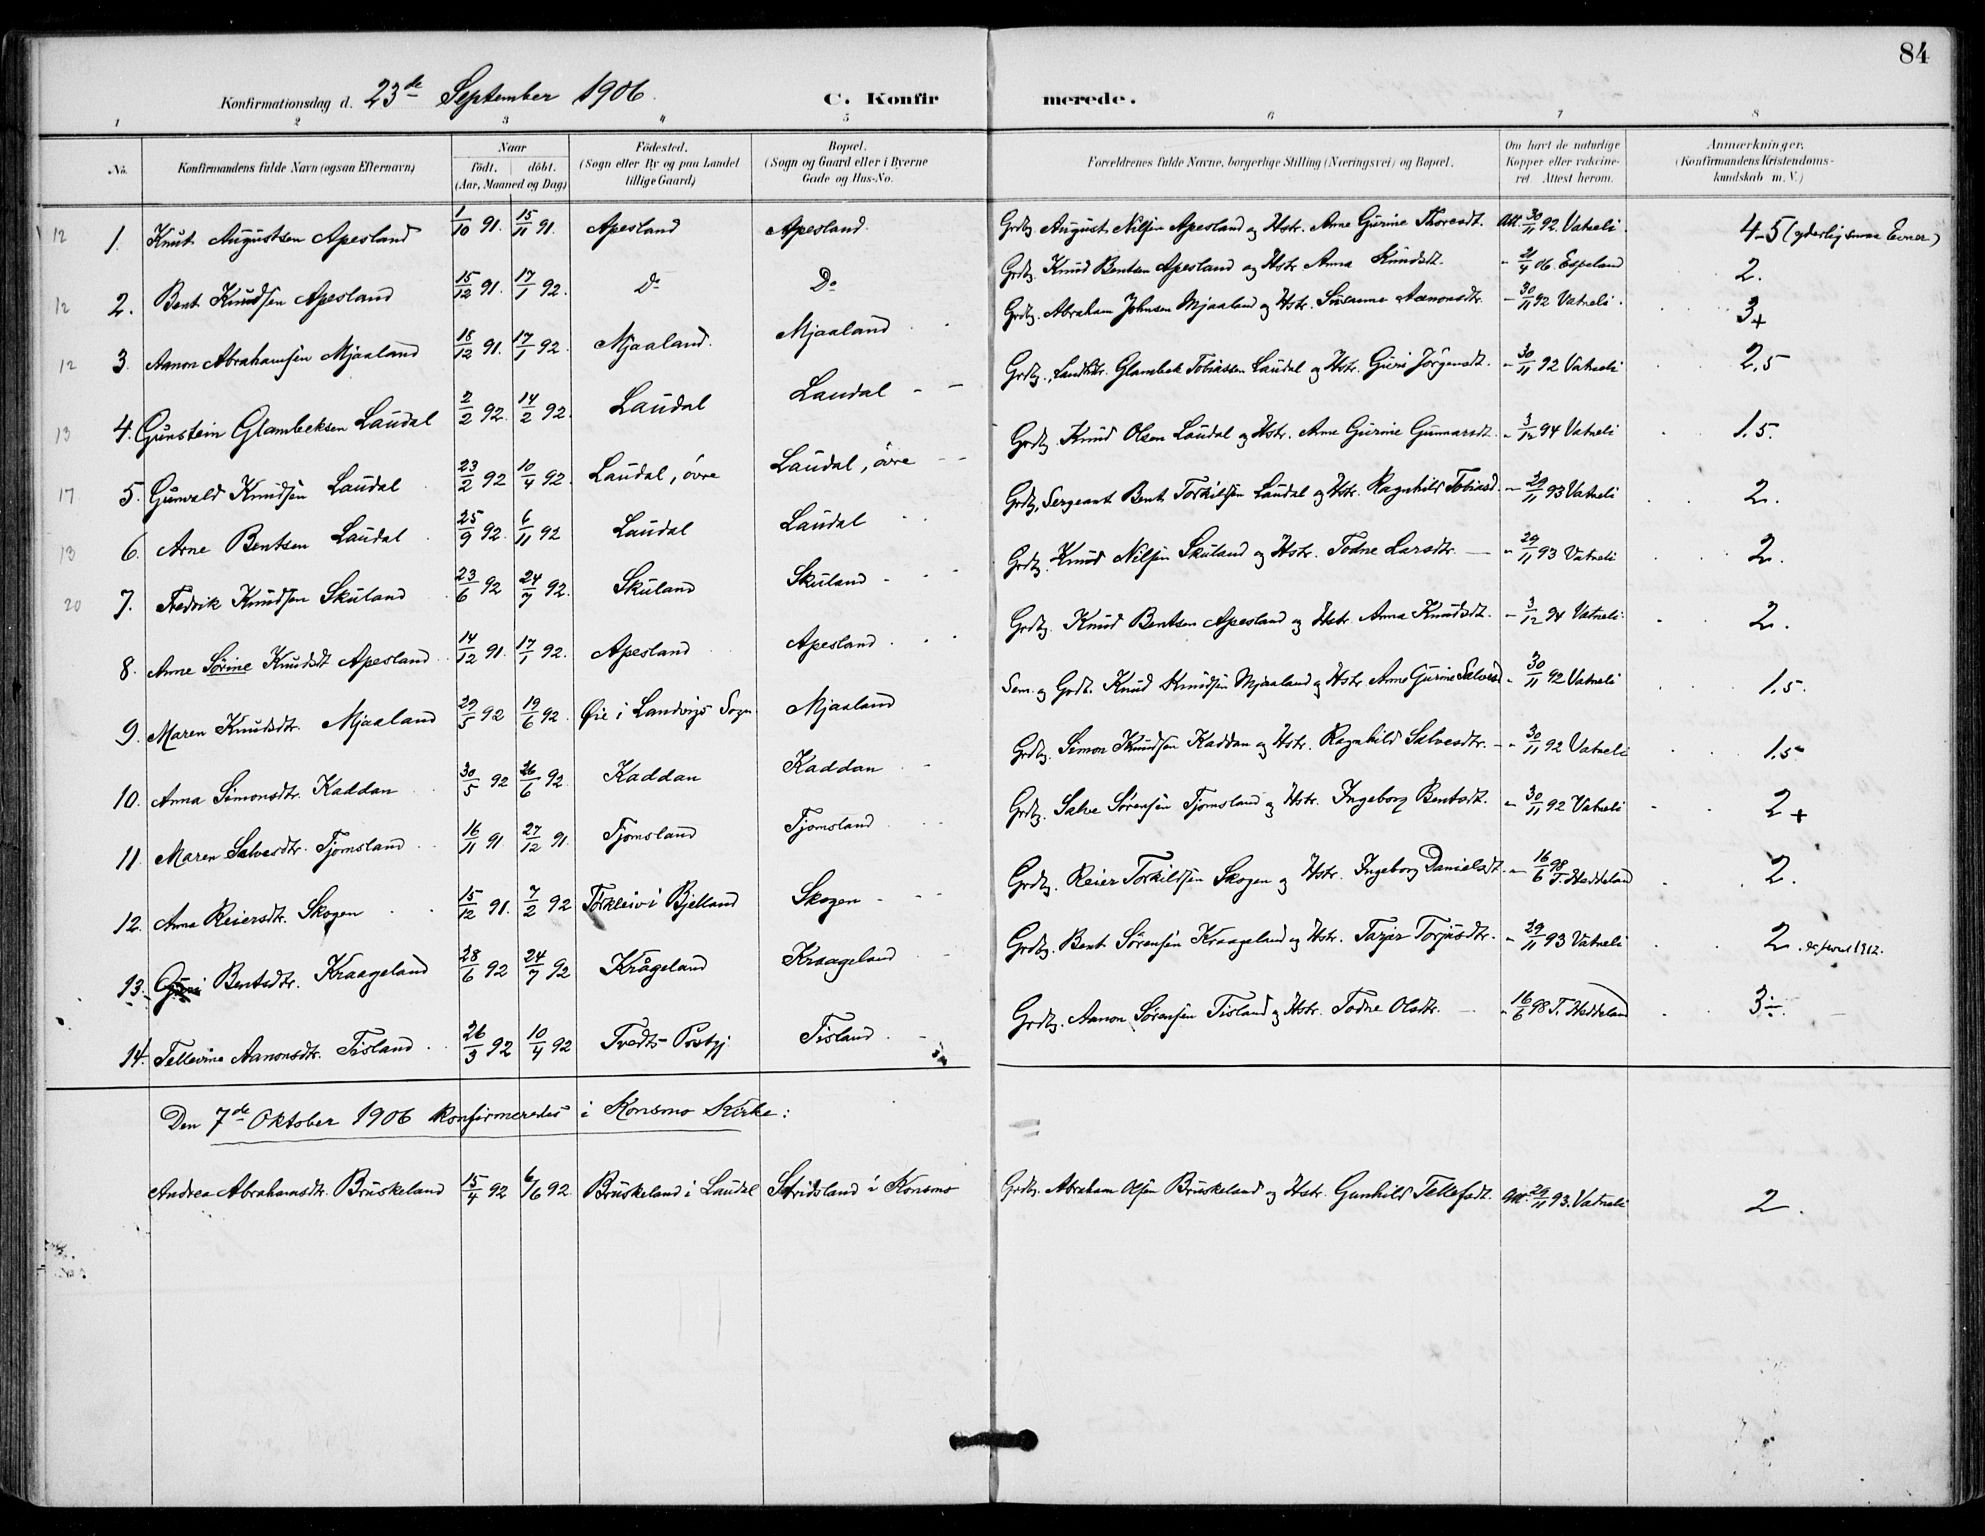 84
Konfirmationsdag d. 23de September 1906. C. Konfirmerede.
1 2 3 4 5 6 7 8
No. Konfirmandens fulde Navn (ogsaa Efternavn) Naar födt. döbt. (Aar, Maaned og Dag) Födested. (Sogn eller By og paa Landet tillige Gaard) Bopæl. (Sogn og Gaard eller i Byerne Gade og Hus-No. Forældrenes fulde Navne, borgerlige Stilling (Næringsvei) og Bopæl. Om havt de naturlige Kopper eller vakcineret. Attest herom. Anmærkninger. (Konfirmandens Kristendomskundskab m. V.)
12 1. Knut Augustsen Apesland 1/10 91. 15/11 91. Apesland Apesland. Grdbg. August Nilsen Apesland og Hstr. Anne Gurine Thoresdt. Att. 30/11 92 Vatneli. 4-5 (yderlig smaa Evner)
12 2. Bent Knudsen Apesland 15/12 91. 17/1 92. Do Do Grdbg. Knud Bentsen Apesland og Hstr. Anna Knudsdt. - 21/4 06. Espeland 2.
12 3. Aanon Abrahamsen Mjaaland 18/12 91. 17/1 92. Mjaaland. Mjaaland Grdbg. Abraham Johnsen Mjaaland og Hstr. Susanne Aanonsdtr. - 30/11 92 Vatneli. 3+
13 4. Gunstein Glambeksen Laudal 2/2 92. 14/2 92. Laudal Laudal Grdbg., Landhdr. Glambek Tobiassen Laudal og Hstr. Guri Jörgensdt. - 30/11 92 Vatneli 2,5
17 5. Gunvald Knudsen Laudal 23/2 92 10/4 92. Laudal, övre Laudal, övre Grdbg. Knud Olsen Laudal og Hstr. Anne Gurine Gunnarsdt. - 3/12 94 Vatneli 1,5.
13 6. Arne Bentsen Laudal 25/9 92. 6/11 92 Laudal Laudal Grdbg, Sergeant Bent Torkilsen Laudal og Hstr. Ragnhild Tobiasd. - 29/11 93 Vatneli 2.
20 7. Fredrik Knudsen Skuland 23/6 92 24/7 92. Skuland Skuland Grdbg. Knud Nilsen Skuland og Hstr. Todne Larsdtr. - 29/11 93 Vatneli 2.
8. Anne Sörine Knudsdt Apesland 14/12 91. 17/1 92. Apesland Apesland. Grdbg. Knud Bentsen Apesland og Hstr Anna Knudsdt. - 3/12 94 Vatneli 2.
9. Maren Knudsdtr. Mjaaland 29/5 92 19/6 92. Øie i Landvigs Sogn Mjaaland Sem. og Grdb. Knud Knudsen Mjaaland og Hstr Anne Gurine Salvesd - 30/11 92 Vatneli 1,5.
10. Anna Simonsdtr. Kaddan 30/5 92 26/6 92. Kaddan Kaddan Grdbg. Simon Knudsen Kaddan og Hstr. Ragnhild Salvesdtr. - 30/11 92 Vatneli 1,5
11. Maren Salvesdtr. Tjomsland 16/11 91 27/12 91. Tjomsland Tjomsland Grdbg. Salve Sörensen Tjomsland og Hstr. Ingeborg Bentsdt. - 30/11 92 Vatneli 2+
12. Anna Reiersdtr. Skogen 15/12 91. 7/2 92 Torkleiv i Bjelland Skogen Grdbg. Reier Torkildsen Skogen og Hstr. Ingeborg Danielsdt. - 16/6 98 T. Heddeland 2.
13. Guri Bentsdtr. Kraageland 28/6 92 24/7 92 Krågeland Kraageland Grdbg. Bent Sörensen Kraageland og Hstr. Tarjer Torjusdtr. - 29/11 93 Vatneli 2. 1912.
14. Tellevine Aanonsdtr. Tisland 26/3 92 10/4 92 Tvedts Tisland. Grdbg. Aanon Sörensen Tisland og Hstr. Todne Olsdtr. - 16/6 98 T. Heddeland 3÷
Den 7de Oktober 1906 konfirmeredes i Konsmo Kirke:
Andrea Abrahamsdtr. Bruskeland 15/4 92 6/6 92. Bruskeland i Laudal Stridsland i Konsmo Grdbg. Abraham Olsen Bruskeland og Hstr. Gunhild Tellefsdt. Att. 29/11 93. Vatneli 2.